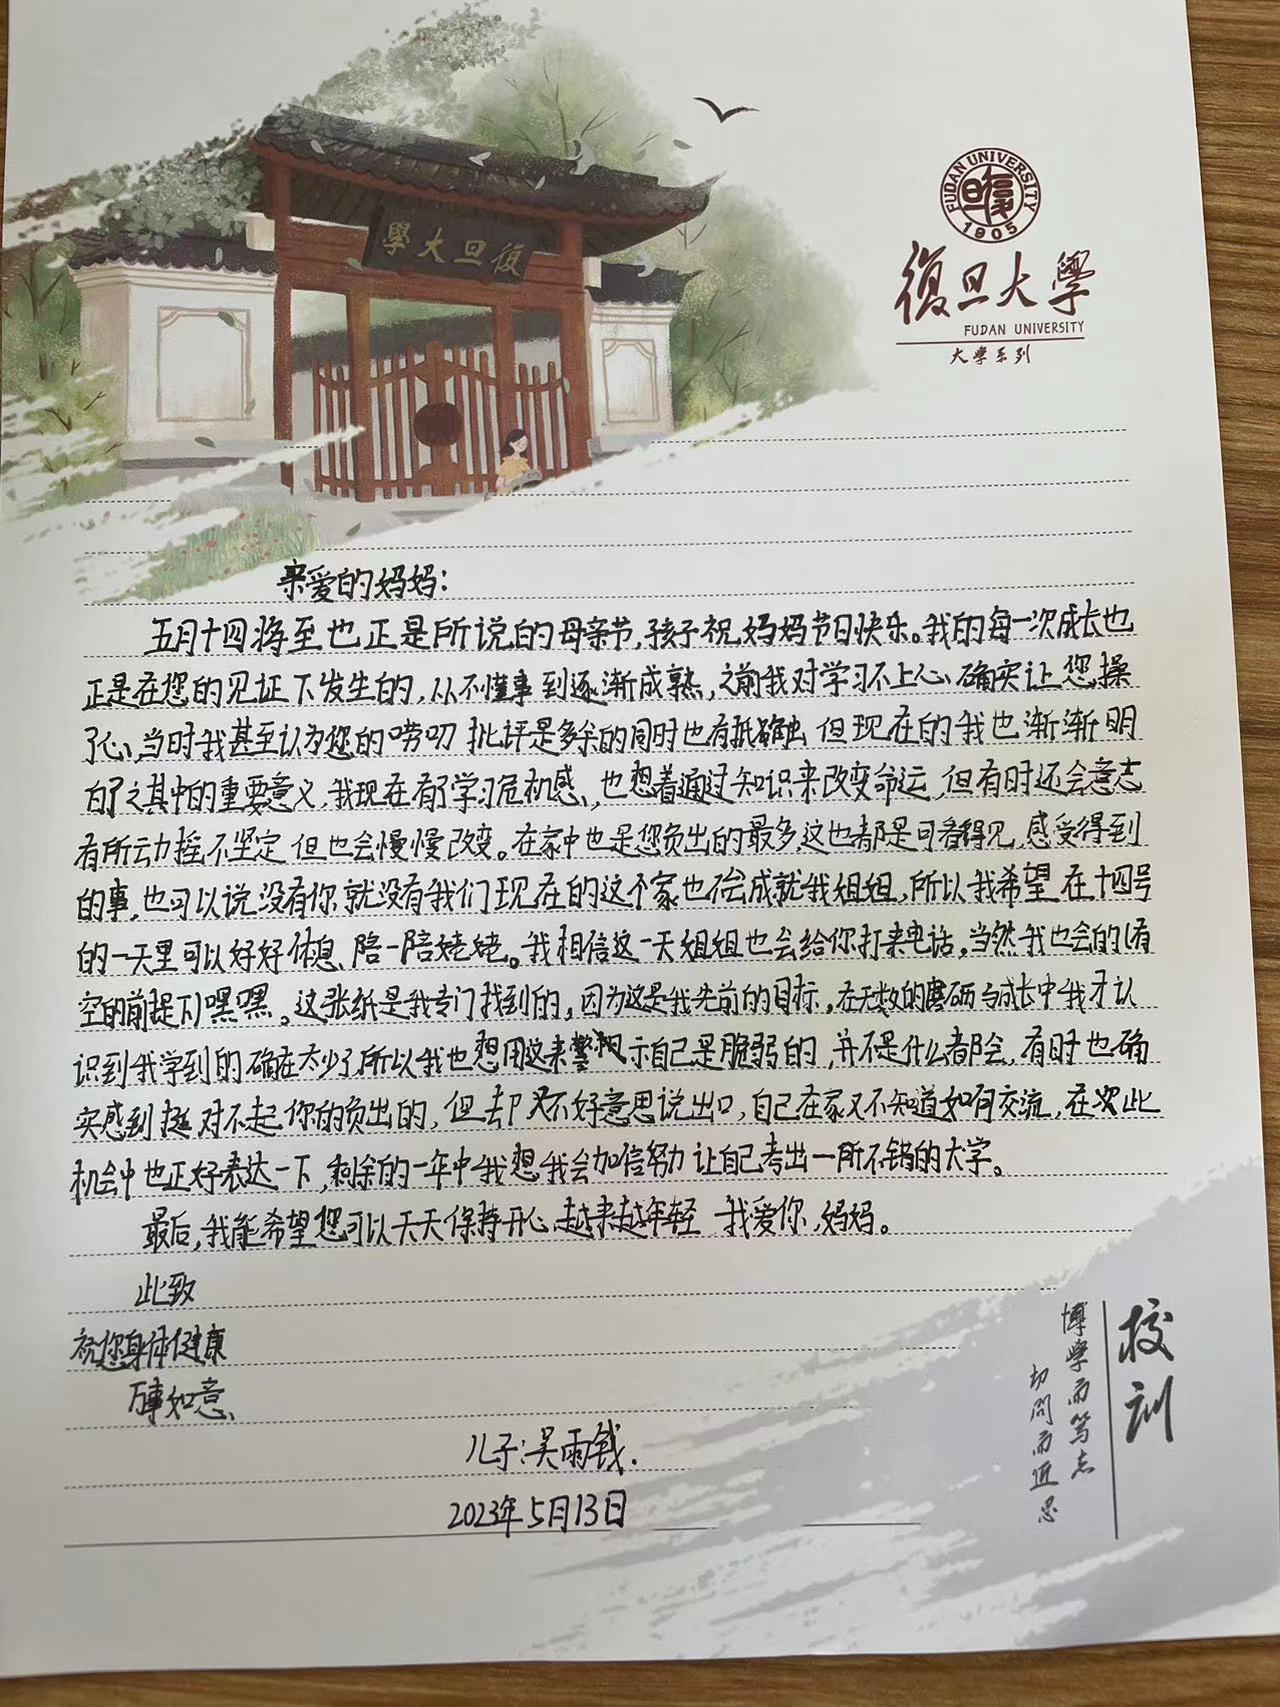 FUDAN UNIVERSITY
1905
學大旦復
復旦大學
FUDAN UNIVERSITY
大學系列
亲爱的妈妈：
五月十四将至也正是所说的母亲节，孩子祝妈妈节日快乐。我的每一次成长也
正是在您的见证下发生的，从不懂事到逐渐成熟，之前我对学习不上心、确实让您操
了心、当时我甚至认为您的唠叨批评是多余的同时也有抵触但现在的我也渐渐明
白了之其中的重要意义，我现在有了学习危机感、也想着通过知识来改变命运，但有时还会意志
有所动摇不坚定但也会慢慢改变。在家中也是您负出的最多，这也都是可看得见，感受得到
的事，也可以说没有你就没有我们现在的这个家也不会成就我姐姐，所以我希望在十四号
的一天里可以好好休息、陪一陪姥姥。我相信这一天姐姐也会给你打来电话。当然我也会的(有
空的前提下)嘿嘿。这张纸是我专门找到的，因为这是我先前的目标，在无数的磨砺与成长中我才认
识到我学到的确在太少了，所以我也想用这来警示自己是脆弱的，并不是什么都会，有时也确
实感到挺对不起你的负出的，但却又不好意思说出口，自己在家又不知道如何交流，在次此
机会中也正好表达一下，剩余的一年中我想我会加倍努力让自己考出一所不错的大学。
最后，我能希望您可以天天保持开心、越来越年轻 我爱你，妈妈。
此致
祝您身体健康
万事如意、
儿子：吴雨钱.
2023年5月13日
校训
博學而篤志
切問而近思